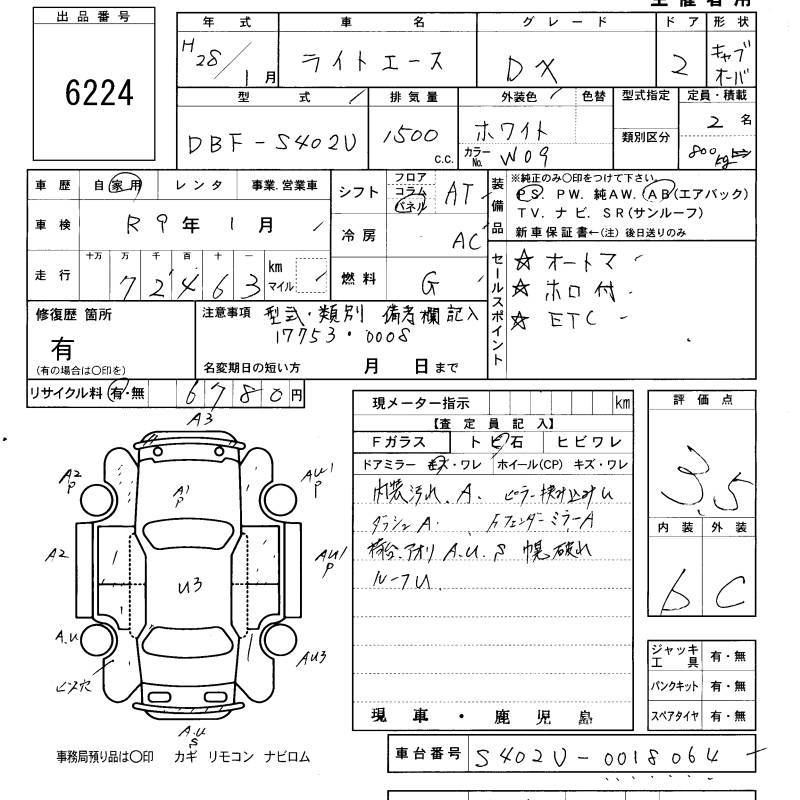 主催者用
出品番号
6224
年式 車名 グレード ドア 形状
H28/1月 ライトエース DX 2 キャブオーバ
型式 排気量 外装色 色替 型式指定 定員・積載
DBF-S402U 1500c.c. ホワイト 類別区分 2名
カラーNo. W09 800kg
車歴 自家用 レンタ 事業.営業車
車検 R9年1月
走行 十万 万 千 百 十 一 km マイル
72463
シフト フロア コラム パネル AT
冷房 AC
燃料 G
装備品
※純正のみ〇印をつけて下さい
PS. PW. 純AW. AB(エアバック)
TV. ナビ. SR(サンルーフ)
新車保証書←(注)後日送りのみ
セールスポイント
☆ オートマ
☆ ホロ付
☆ ETC
修復歴 箇所
有
(有の場合は〇印を)
注意事項 型式・類別 備考欄記入
17753・0008
名変期日の短い方 月 日まで
リサイクル料 有・無 6780円
現メーター指示 km
【査定員記入】
Fガラス トビ石 ヒビワレ
ドアミラー キズ・ワレ ホイール(CP) キズ・ワレ
内装汚れ.A. ピラー
ダッシュA. フェンダーミラーA
荷台.アオリ A.U.S 幌破れ
ルーフU
現車・鹿児島
評価点
3.5
内装 外装
D C
ジャッキ工具 有・無
パンクキット 有・無
スペアタイヤ 有・無
A3
A2 P
A1 P
AU1 P
A2
U3
AU1 P
A.U
AU3
ビス穴
A.U S
事務局預り品は〇印 カギ リモコン ナビロム
車台番号 S402U-0018064